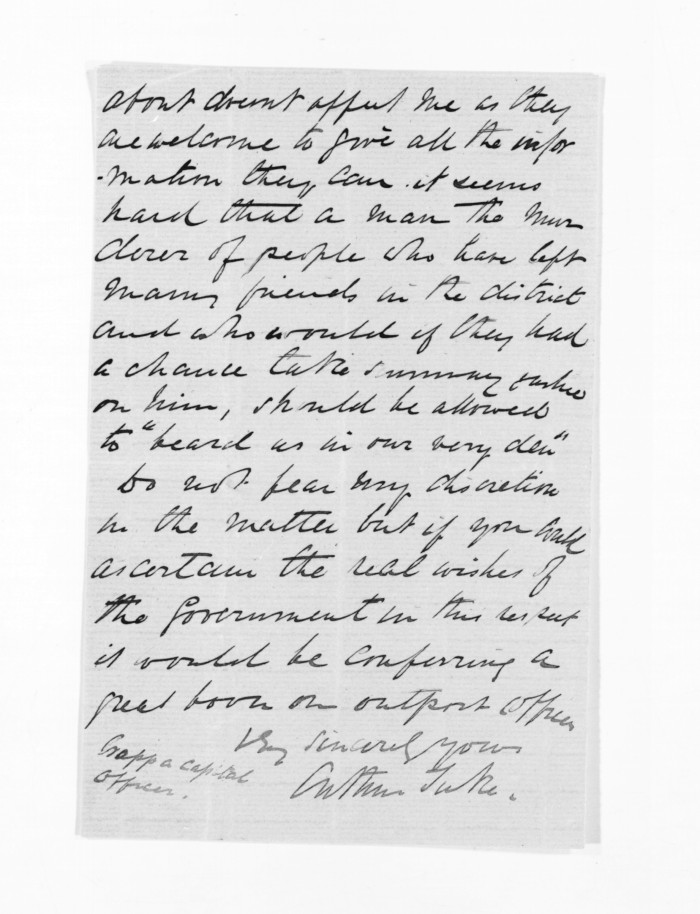 about doesnt affect me as they
are welcome to give all the infor
-mation they can. it seems
hard that a man the mur
derer of people who have left
many friends in the district
and who would if they had
a chance take summary justice
on him, should be allowed
to "beard us in our very den"
Do not fear my discretion
in the matter but if you could
ascertain the real wishes of
the Government in this respect
it would be conferring a
great boon on outpost officers
Very sincerely yours
Arthur Tuke.
a capital
officer.